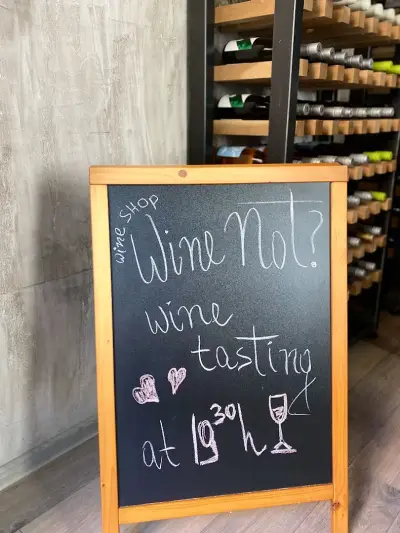 wine SHOP
Wine Not?
wine
tasting
at 19³⁰h